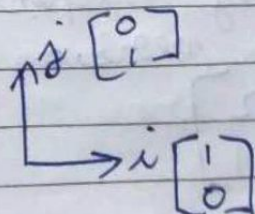 j [0
1]
i [1
0]